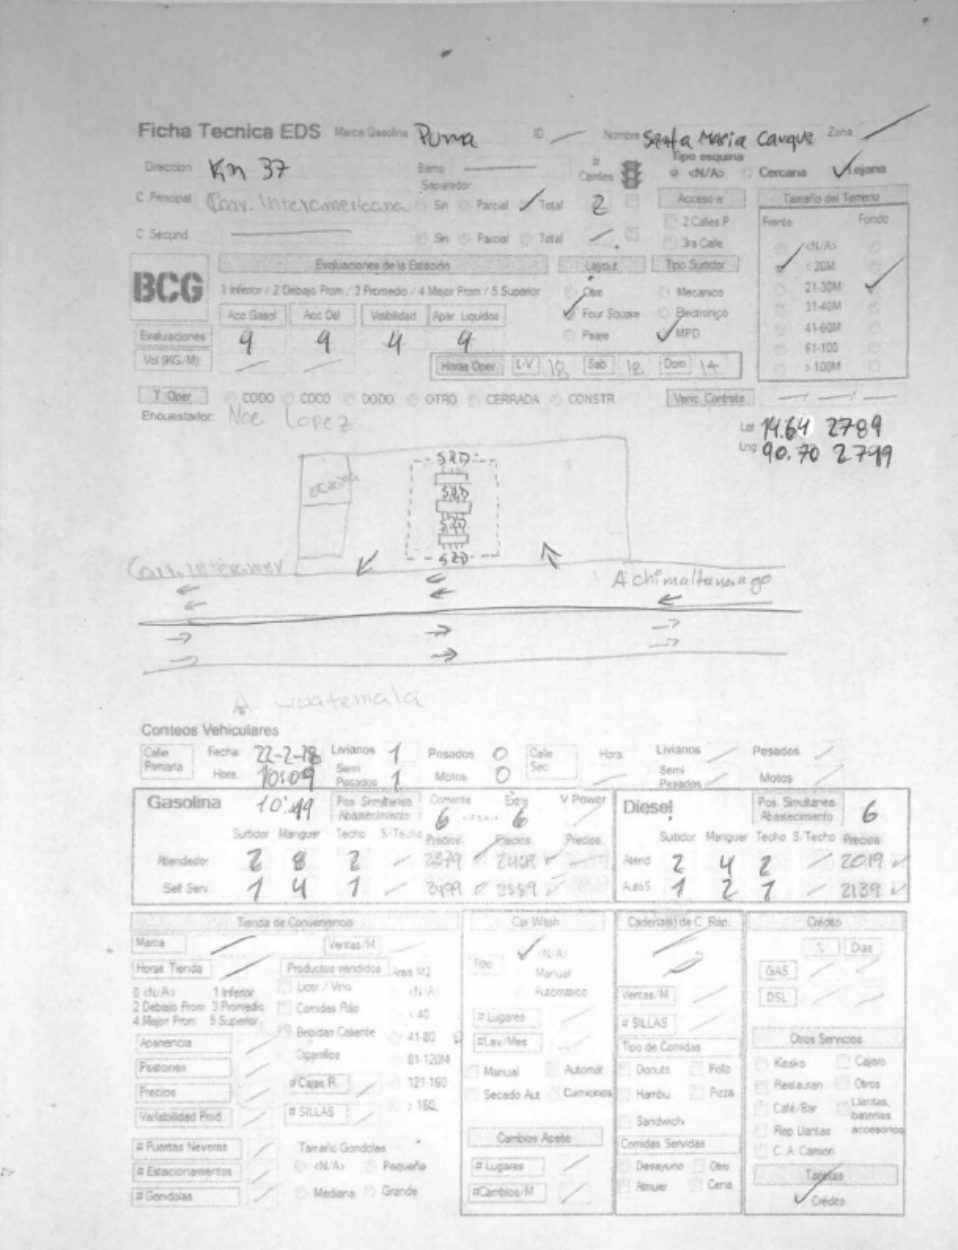 Ficha Tecnica EDS Marca Gasolina Puma ID Nombre Santa Maria Cauque Zona
Direccion Km 37 Barrio # Carriles Tipo esquina <N/A> Cercana Lejana
C Principal Carr. Interamericana Separador Sin Parcial Total 2 Acceso a Tamaño del Terreno
C Secund. Sin Parcial Total 2 Calles P Frente Fondo
3ra Calle <N/A>
BCG Evaluaciones de la Estación Layout Tipo Surtidor < 20M
1 Inferior / 2 Debajo Prom / 3 Promedio / 4 Mejor Prom / 5 Superior Otro Mecanico 21-30M
Acc Gasol Acc Dsl Visibilidad Apar. Liquidos Four Square Electronico 31-40M
Evaluaciones 4 4 4 4 Peaje MPD 41-60M
Vol (KG/M): Horas Oper. L-V 18 Sab 18 Dom 14 61-100
> 100M
T. Oper CODO COCO DODO OTRO CERRADA CONSTR Venc. Contrato
Encuestador: Noe Lopez
Lat 14.64 2789
Lng 90.70 2799
SRD
SRD
SRD
SRD
Carr. Interamer A chimaltenango
A Guatemala
Conteos Vehiculares
Calle Primaria Fecha: 22-2-18 Livianos 1 Pesados 0 Calle Sec Hora Livianos Pesados
Hora: 10:09 Semi Pesados 1 Motos 0 Semi Pesados Motos
Gasolina 10:49 Pos. Simultanea Abastecimiento Corriente 6 Extra 6 V Power Diesel Pos. Simultanea Abastecimiento 6
Surtidor Manguer Techo S/Techo Precios Precios Precios Surtidor Manguer Techo S/Techo Precios
Atendedor 2 8 2 Atend 2 4 2 2019
Self Serv 1 4 1 AutoS 1 2 1 2139
Tienda de Conveniencia Car Wash Cadena(s) de C. Rap. Crédito
Marca Ventas/M <N/A> % Dias
Horas Tienda Productos vendidos Area M2 Manual GAS
0 <N/A> 1 Inferior Licor / Vino <N/A> Automatico Ventas/M DSL
2 Debajo Prom 3 Promedio Comidas Rap < 40 # Lugares # SILLAS
4 Mejor Prom 5 Superior Bebidas Caliente 41-80 #Lav/Mes Tipo de Comidas Otros Servicios
Apariencia Cigarrillos 81-120M Manual Automát. Donuts Pollo Kiosko Cajero
Pasillones # Cajas R. 121-160 Secado Aut. Camiones Hambu Pizza Restauran Otros
Precios # SILLAS > 160 Sandwich Café/Bar Llantas, baterias accesorios
Variabilidad Prod. Cambios Aceite Comidas Servidas Rep Llantas
# Puertas Neveras Tamaño Gondolas # Lugares Desayuno Otro C. A. Camion
# Estacionamientos <N/A> Pequeño #Cambios/M Almuer Cena Tarjetas
# Gondolas Mediana Grande Crédito